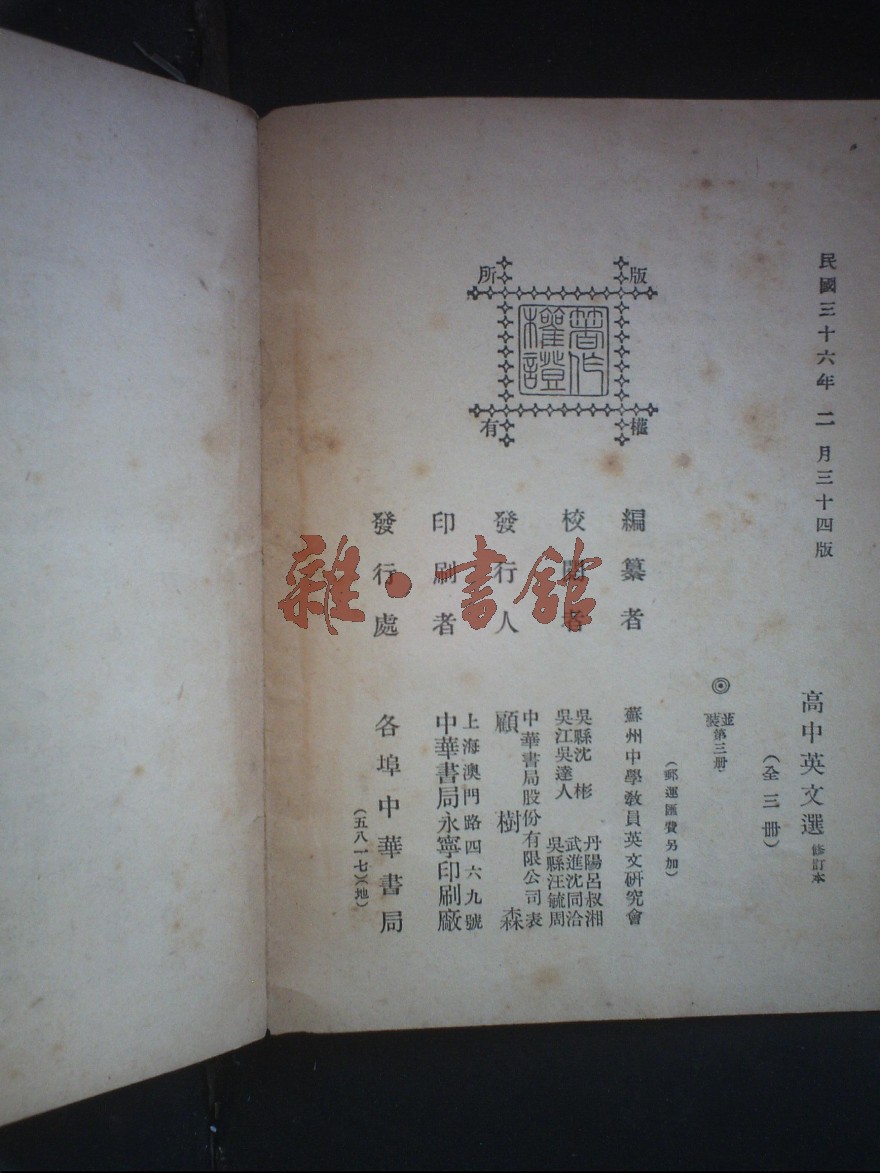 民國三十六年二月三十四版
高中英文選 修訂本
（全三冊）
◎
並裝第三冊
（郵運匯費另加）
版權所有
著作權證
編纂者
蘇州中學教員英文研究會
校閱者
吳縣沈彬
丹陽呂叔湘
武進沈同洽
吳江吳達人
吳縣汪毓周
發行人
中華書局股份有限公司代表
顧樹森
印刷者
上海澳門路四六九號
中華書局永寧印刷廠
發行處
各埠中華書局
（五八一七）（地）
雜·書館